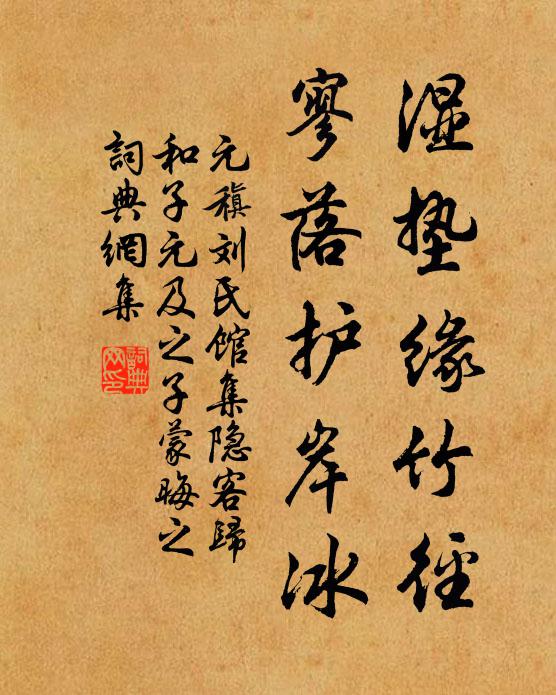 湿垫缘竹径
寥落护岸冰
元稹刘氏馆集隐客歸
和子元及之子蒙晦之
詞典網集
詞典網印